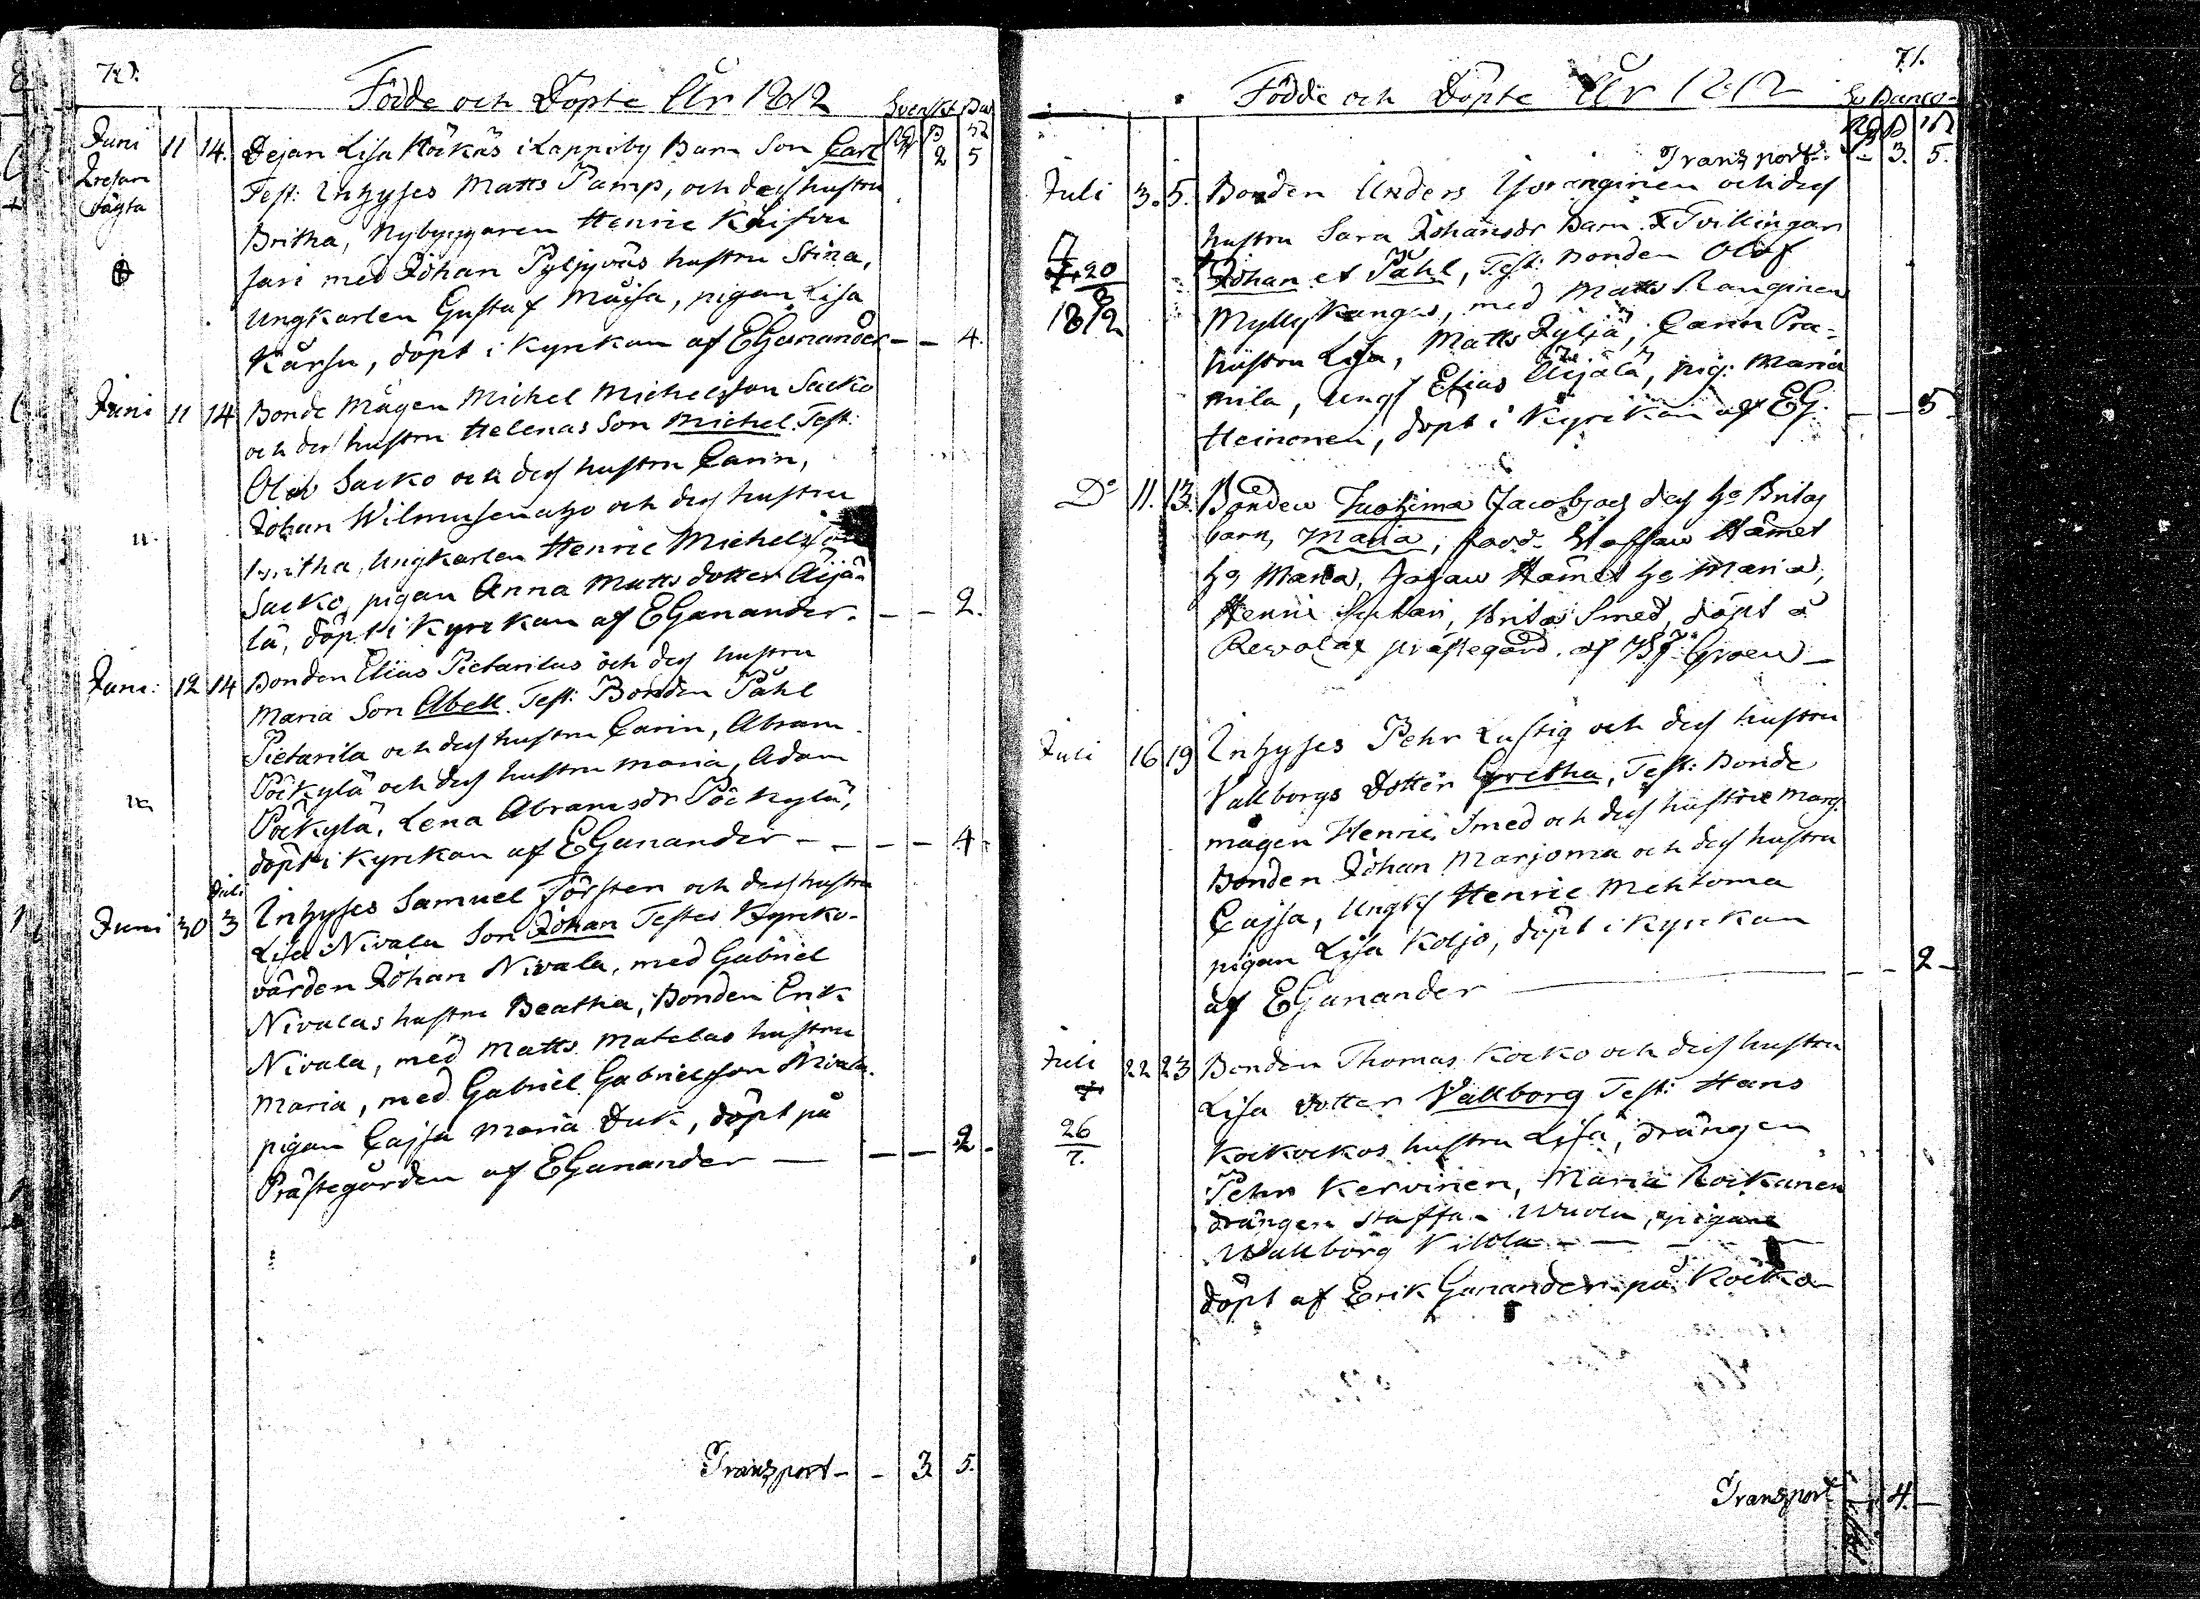 70.
Födde och Döpte År 1812
Svenskt Bco
Rd ß
Juni 11 14. Dejan Lisa Höckäs i Lappiby Barn Son Carl 2 5
Test: Inhyses Matts Pamp, och dess hustru
Britha, Nybyggaren Henric
med Johan Pyljyväs hustru Stina,
Ungkarlen Gustaf Måisa, pigan Lisa
Kärsu, döpt i Kyrckan af EGanander — — 4.
Juni 11 14 Bonde Mågen Michel Michelsson Sacko
och dess hustru Helenas Son Michel. Test:
Olof Sacko och dess hustru Carin,
Johan Wilmusenaho och dess hustru
Britha, Ungkarlen Henric Michelsson
Sacko, pigan Anna Matts dotter Äijä-
lä, döpt i Kyrckan af EGanander. — — 2.
Juni: 12 14 Bonden Elias Pietarilas och dess hustru
Maria Son Abell. Test: Bonden Påhl
Pietarila och dess hustru Carin, Abram
Pöckylä och dess hustru Maria, Adam
Pöckylä, Lena Abramsdr Pöckylä,
döpt i Kyrckan af EGanander — — — — 4.
Juli
Juni 30 3 Inhyses Samuel Försten och dess hustru
Lisa Nivala Son Johan Testes Kyrcko-
värden Johan Nivala, med Gabriel
Nivalas hustru Beatha, Bonden Erik
Nivala, med Matts Matelas hustru
Maria, med Gabriel Gabrielsson Nivala.
pigan Cajsa Maria Duk, döpt på
Prästegården af EGanander — — — 2.
Transport — — 3 5.
71.
Födde och Döpte År 1812
Sv Banco
Rd ß
Transport: — 3. 5.
Juli 3. 5. Bonden Anders och dess
hustru Sara Johansdr Barn Tvillingar
Johan et Påhl, Test: Bonden Olof
20
8
1812
Myllykangas, med Matts Ranginen
hustru Lisa, Matts Jyljä, Carin Pra-
mila, Ungk Elias Äijälä, pig: Maria
Heinonen, döpt i Kyrckan af EG. — — 5.
Do 11. 13. Bonden Tuohima Jacobs och dess ho Britas
barn, Maria, fadd. Staffan Hämet
ho Maria, Johan Hämet ho Maria,
Henric, Brita Smed, döpt å
Revolax prästegård af Groen —
Juli 16 19 Inhyses Pehr Lustig och dess hustru
Vallborgs Dotter Gretha, Test: Bonde
mågen Henric Smed och dess hustru Marg.
Bonden Johan Marjoma och dess hustru
Cajsa, Ungk Henric Mehtoma
pigan Lisa Koljo, döpt i Kyrckan
af EGanander — — — 2 —
Juli 22 23 Bonden Thomas Kocko och dess hustru
Lisa dotter Vallborg Test: Hans
26
7.
Kockockos hustru Lisa, drängen
Pehr Kervinen, Maria Rockanen
drängen Staffan Wuola, pigan
Wallborg Killola — — — —
döpt af Erik Ganander på Kocko
Transport — 4. —